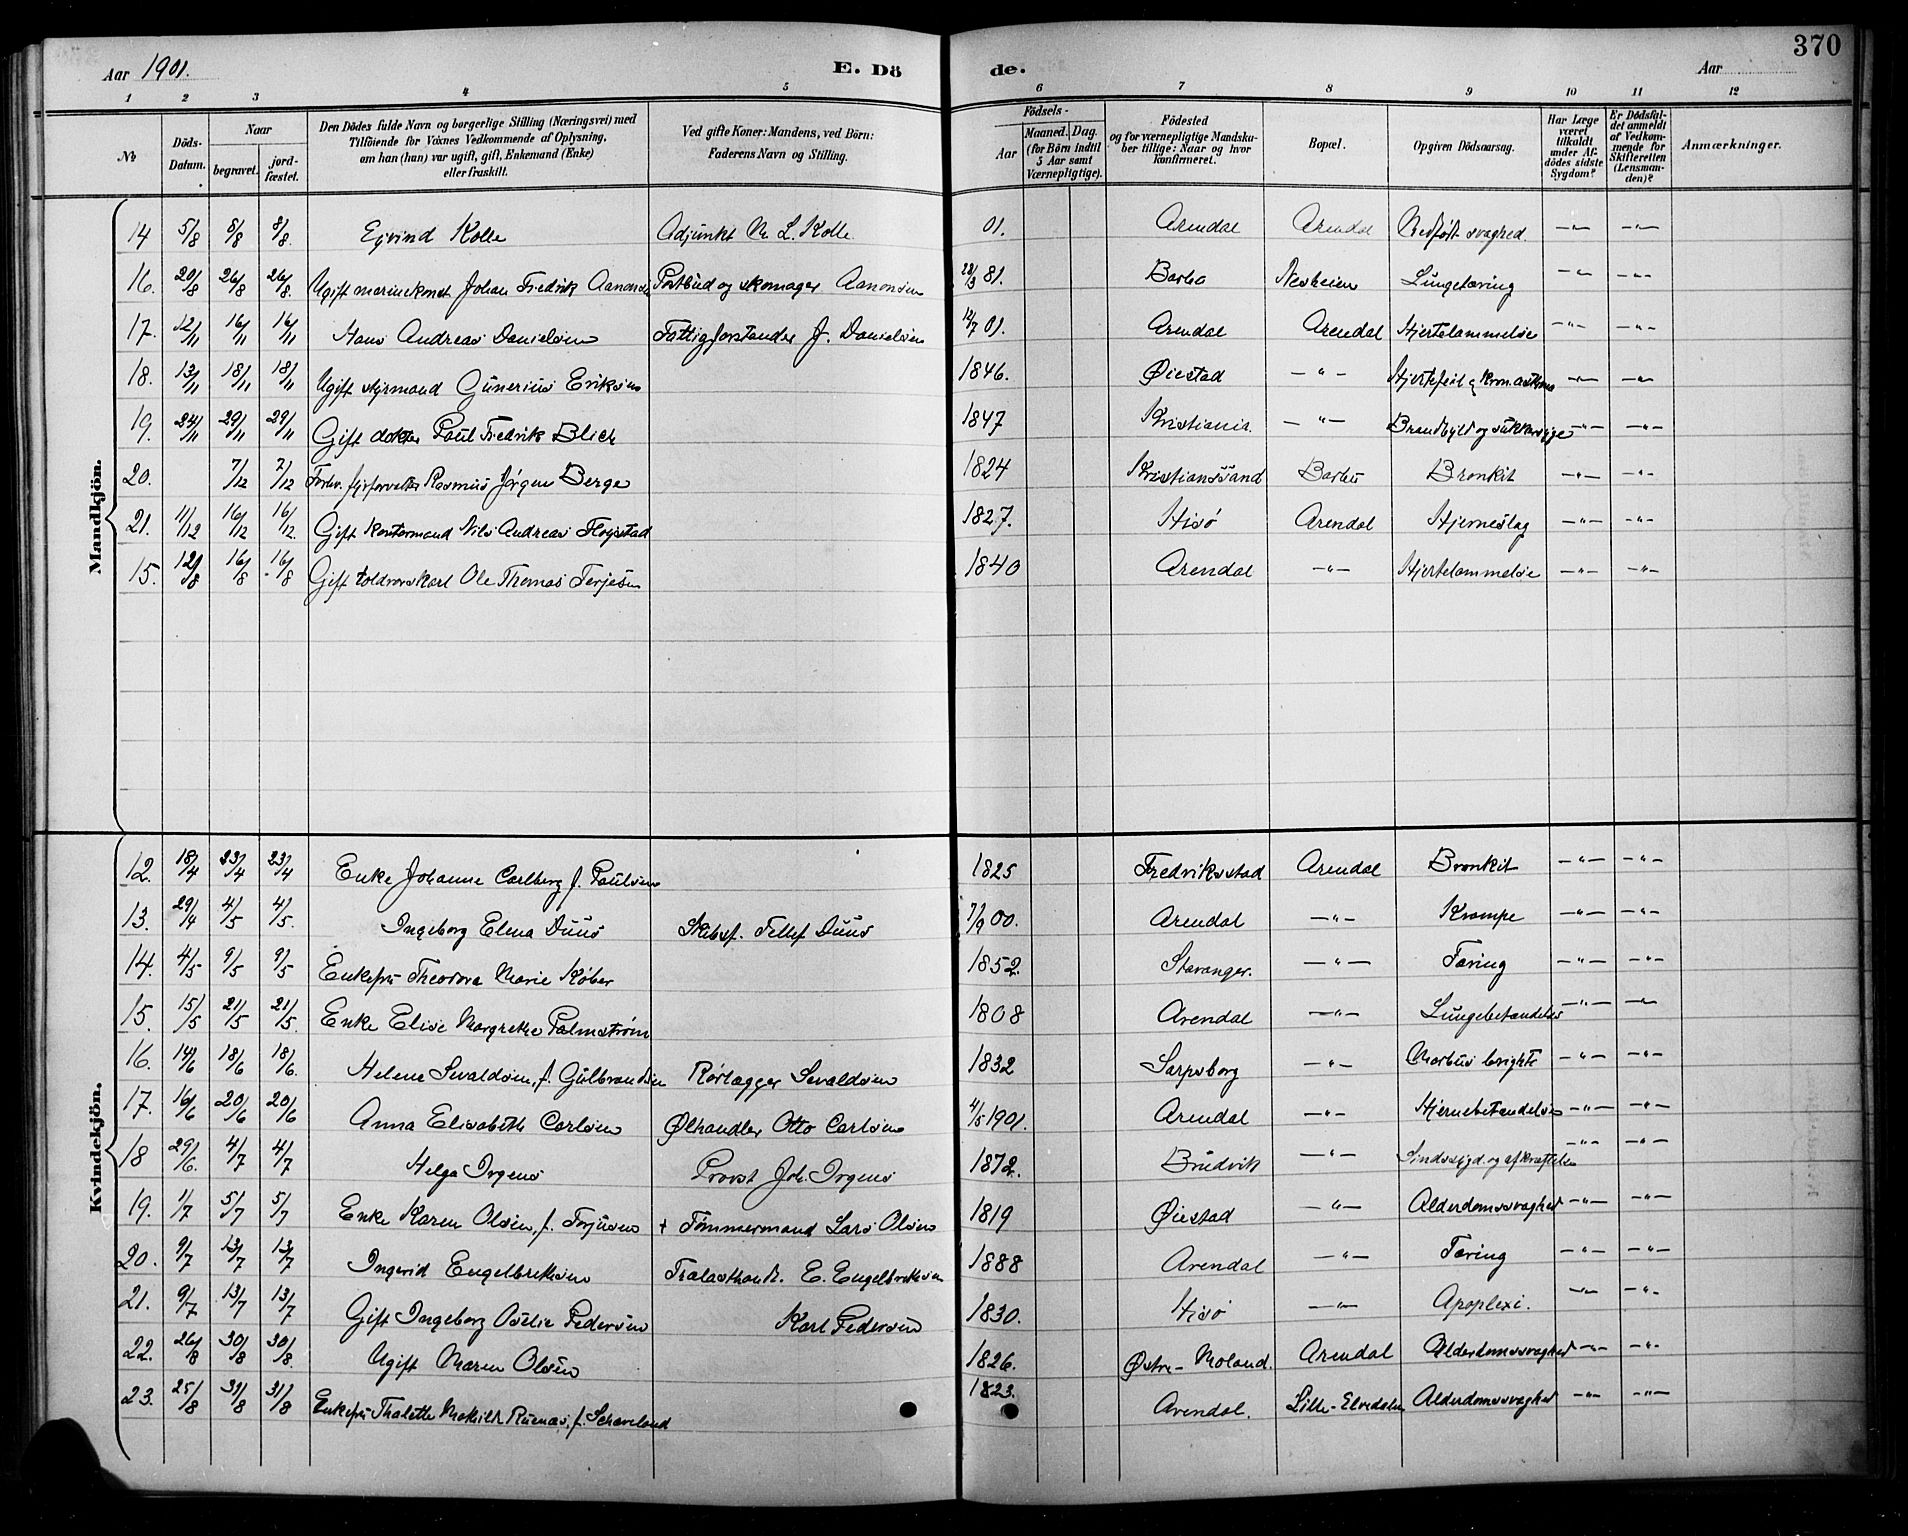 370
Aar 1901. E. Dö de. Aar
1 2 3 4 5 6 7 8 9 10 11 12
№ Döds-Datum. Naar begravet. jordfæstet. Den Dödes fulde Navn og borgerlige Stilling (Næringsvei) med Tilföiende for Voxnes Vedkommende af Oplysning, om han (hun) var ugift, gift, Enkemand (Enke) eller fraskilt. Ved gifte Koner: Mandens, ved Börn: Faderens Navn og Stilling. Födsels- Aar Maaned. Dag. (for Börn indtil 5 Aar samt Værnepligtige). Födested og for værnepligtige Mandskaber tillige: Naar og hvor Konfirmeret. Bopæl. Opgiven Dödsaarsag. Har Læge været tilkaldt under Afdödes sidste Sygdom? Er Dödsfaldet anmeldt af Vedkommende for Skifteretten (Lensmanden)? Anmærkninger.
Mandkjön.
14 5/8 8/8 8/8. Ejvind Kolle Adjunkt N. L. Kolle 01. Arendal Arendal Medfødt svaghed. —"— —"—
16. 20/8 26/8 26/8. Ugift marinekonst Johan Fredrik Aanonsen Postbud og skomager Aanonsen 28/3 81. Barbo Nesheien Lungetæring —"— —"—
17. 12/11 16/11 16/11 Hans Andreas Danielsen Fattigforstander J. Danielsen 14/7 01. Arendal Arendal Hjertelammelse —"— —"—
18. 13/11 18/11 18/11 Ugift styrmand Gunerius Eriksen 1846. Øiestad —"— Hjertefeil & kron. asthma —"— —"—
19. 24/11 29/11 29/11 Gift doktor Paul Fredrik Blich 1847 Kristiania. —"— Brandbyld og sukkersyge —"— —"—
20. 7/12 7/12 Forhv. fyrforvalter Rasmus Jørgen Berge 1824 Kristianssand Barbu Bronkit —"— —"—
21. 11/12 16/12 16/12. Gift kontormand Nils Andreas Fløistad 1827. Hisø Arendal Hjerneslag —"— —"—
15. 12/8 16/8 16/8 Gift toldrorskarl Ole Thomas Terjesen 1840 Arendal —"— Hjertelammelse —"— —"—
Kvindekjön.
12. 18/4 23/4 23/4 Enke Johanne Carlberg f. Paulsen 1825 Fredriksstad Arendal Bronkit —"— —"—
13. 29/4 4/5 4/5. Ingeborg Elena Duus Skibsf. Tellef Duus 7/9 00. Arendal —"— Krampe —"— —"—
14. 4/5 9/5 9/5 Enkefru Theodora Marie Køber 1852. Stavanger. —"— Tæring —"— —"—
15. 15/5 21/5 21/5. Enke Elise Margrethe Palmstrøm 1808 Arendal —"— Lungebetændelse —"— —"—
16. 14/6 18/6 18/6. Helene Sevaldsen, f. Gulbrandsen Rørlægger Sevaldsen 1832 Sarpsborg —"— Morbus brightii —"— —"—
17. 16/6 20/6 20/6 Anna Elisabeth Carlsen Ølhandler Otto Carlsen 4/5 1901. Arendal —"— Hjernebetændelse —"— —"—
18 29/6. 4/7 4/7 Helga Irgens Provst Joh. Irgens 1872. Brudvik —"— Sindssygd. og afkræftelse —"— —"—
19. 1/7 5/7 5/7 Enke Karen Olsen, f. Terjusen + Tømmermand Lars Olsen 1819 Øiestad —"— Alderdomssvaghed —"— —"—
20. 9/7 13/7 13/7 Ingerid Engelbrektsen Trælasthandl. E. Engelbrektsen 1888 Arendal —"— Tæring —"— —"—
21. 9/7 13/7 13/7 Gift Ingeborg Oselie Pedersen Karl Pedersen 1830. Hisø —"— Apoplexi. —"— —"—
22. 26/8 30/8 30/8. Ugift Maren Olsen 1826. Østre-Moland. Arendal Alderdomssvaghed —"— —"—
23. 25/8 31/8 31/8 Enkefru Thalette Mathilde f. 1823. Arendal. Lille-Elvedalen Alderdomssvaghed —"— —"—